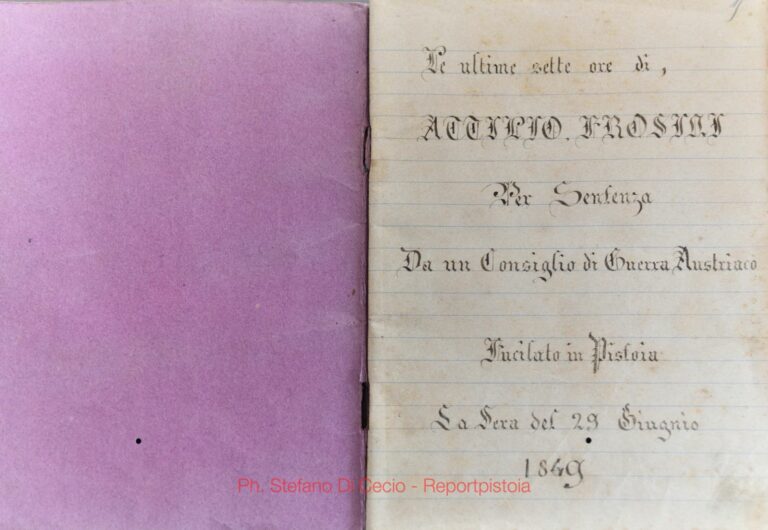 Le ultime sette ore di,
ATTILIO. FROSINI
Per Sentenza
Da un Consiglio di Guerra Austriaco
Fucilato in Pistoia
La Sera del 29 Giugnio
1849
Ph. Stefano Di Cecio - Reportpistoia